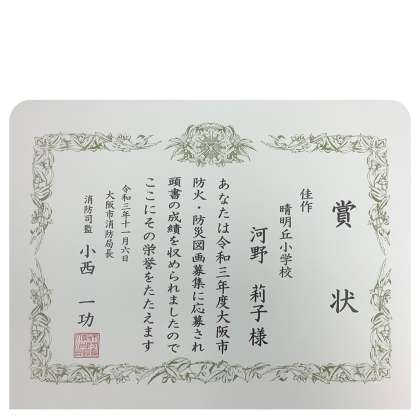 賞状
佳作
晴明丘小学校
河野 莉子様
あなたは令和三年度大阪市
防火・防災図画募集に応募され
頭書の成績を収められましたので
ここにその栄誉をたたえます
令和三年十一月六日
大阪市消防局長
消防司監 小西 一功